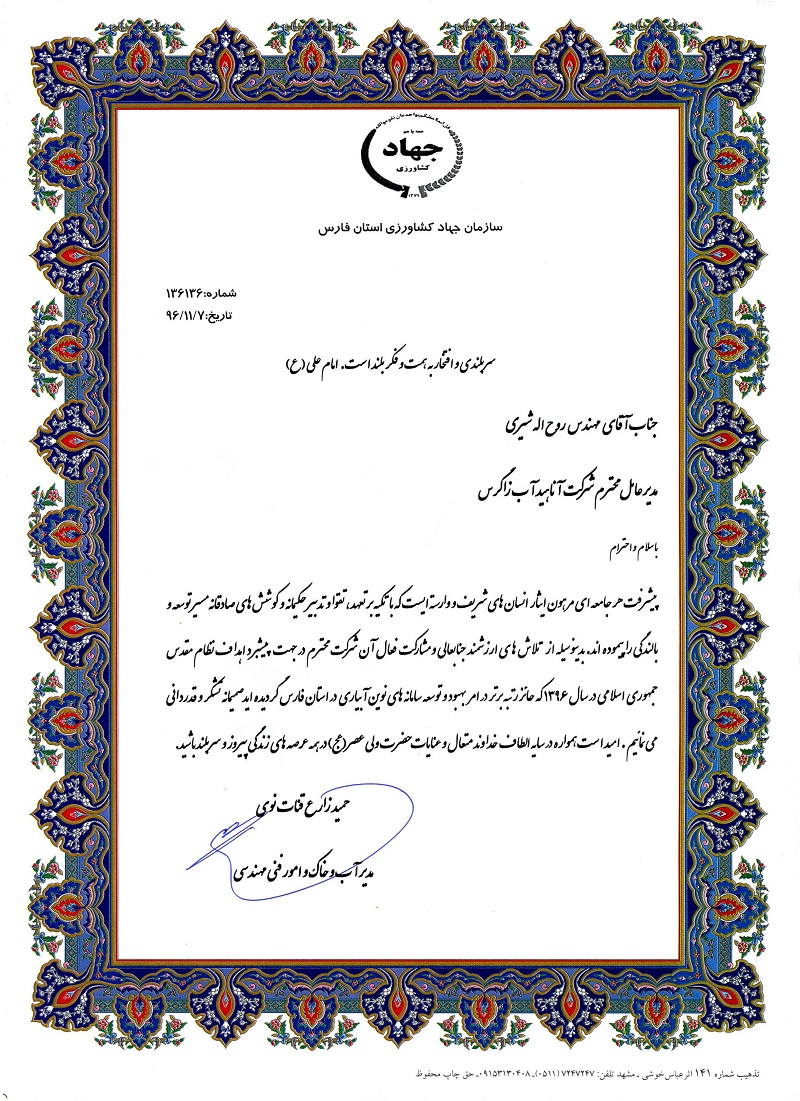 همه با هم
جهاد
کشاورزی
۱۳۷۹
سازمان جهاد کشاورزی استان فارس
شماره:۱۳۶۱۳۶
تاریخ:۹۶/۱۱/۷
سربلندی و افتخار به همت و فکر بلند است. امام علی (ع)
جناب آقای مهندس روح اله شیری
مدیرعامل محترم شرکت آناهید آب زاگرس
باسلام و احترام
پیشرفت هر جامعه ای مرهون ایثار انسان های شریف و وارسته ایست که با تکیه بر تعهد، تقوا و تدبیر حکیمانه و کوشش های صادقانه مسیر توسعه و
بالندگی را پیموده اند، بدینوسیله از تلاش های ارزشمند جنابعالی و مشارکت فعال آن شرکت محترم در جهت پیشبرد اهداف نظام مقدس
جمهوری اسلامی در سال ۱۳۹۶ که حائز رتبه برتر در امر بهبود و توسعه سامانه های نوین آبیاری در استان فارس گردیده اید صمیمانه تشکر و قدردانی
می نمائیم . امید است همواره در سایه الطاف خداوند متعال و عنایات حضرت ولی عصر(عج) در همه عرصه های زندگی پیروز و سربلند باشید.
حمید زارع قنات نوی
مدیر آب و خاک و امور فنی مهندسی
تذهیب شماره ۱۴۱ اثر عباس خوشی - مشهد تلفن: ۷۲۴۷۲۴۷ (۰۵۱۱)-۰۹۱۵۳۱۳۰۴۰۸ حق چاپ محفوظ